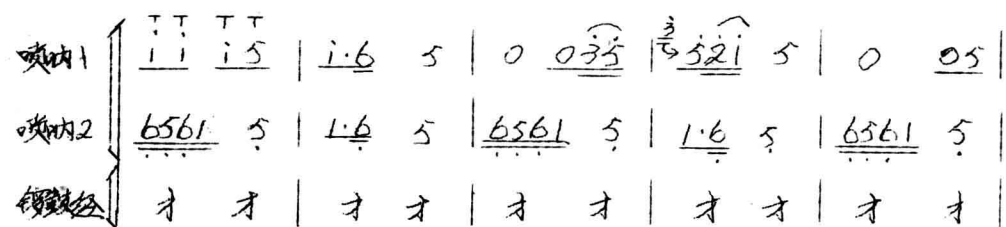 唢呐1 T T T T i i i 5 | i·6 5 | 0 0 3 5 | 3 5 2 i 5 | 0 0 5 |
唢呐2 6 5 6 1 5 | 1·6 5 | 6 5 6 1 5 | 1·6 5 | 6 5 6 1 5 |
锣鼓经 才 才 | 才 才 | 才 才 | 才 才 | 才 才 |